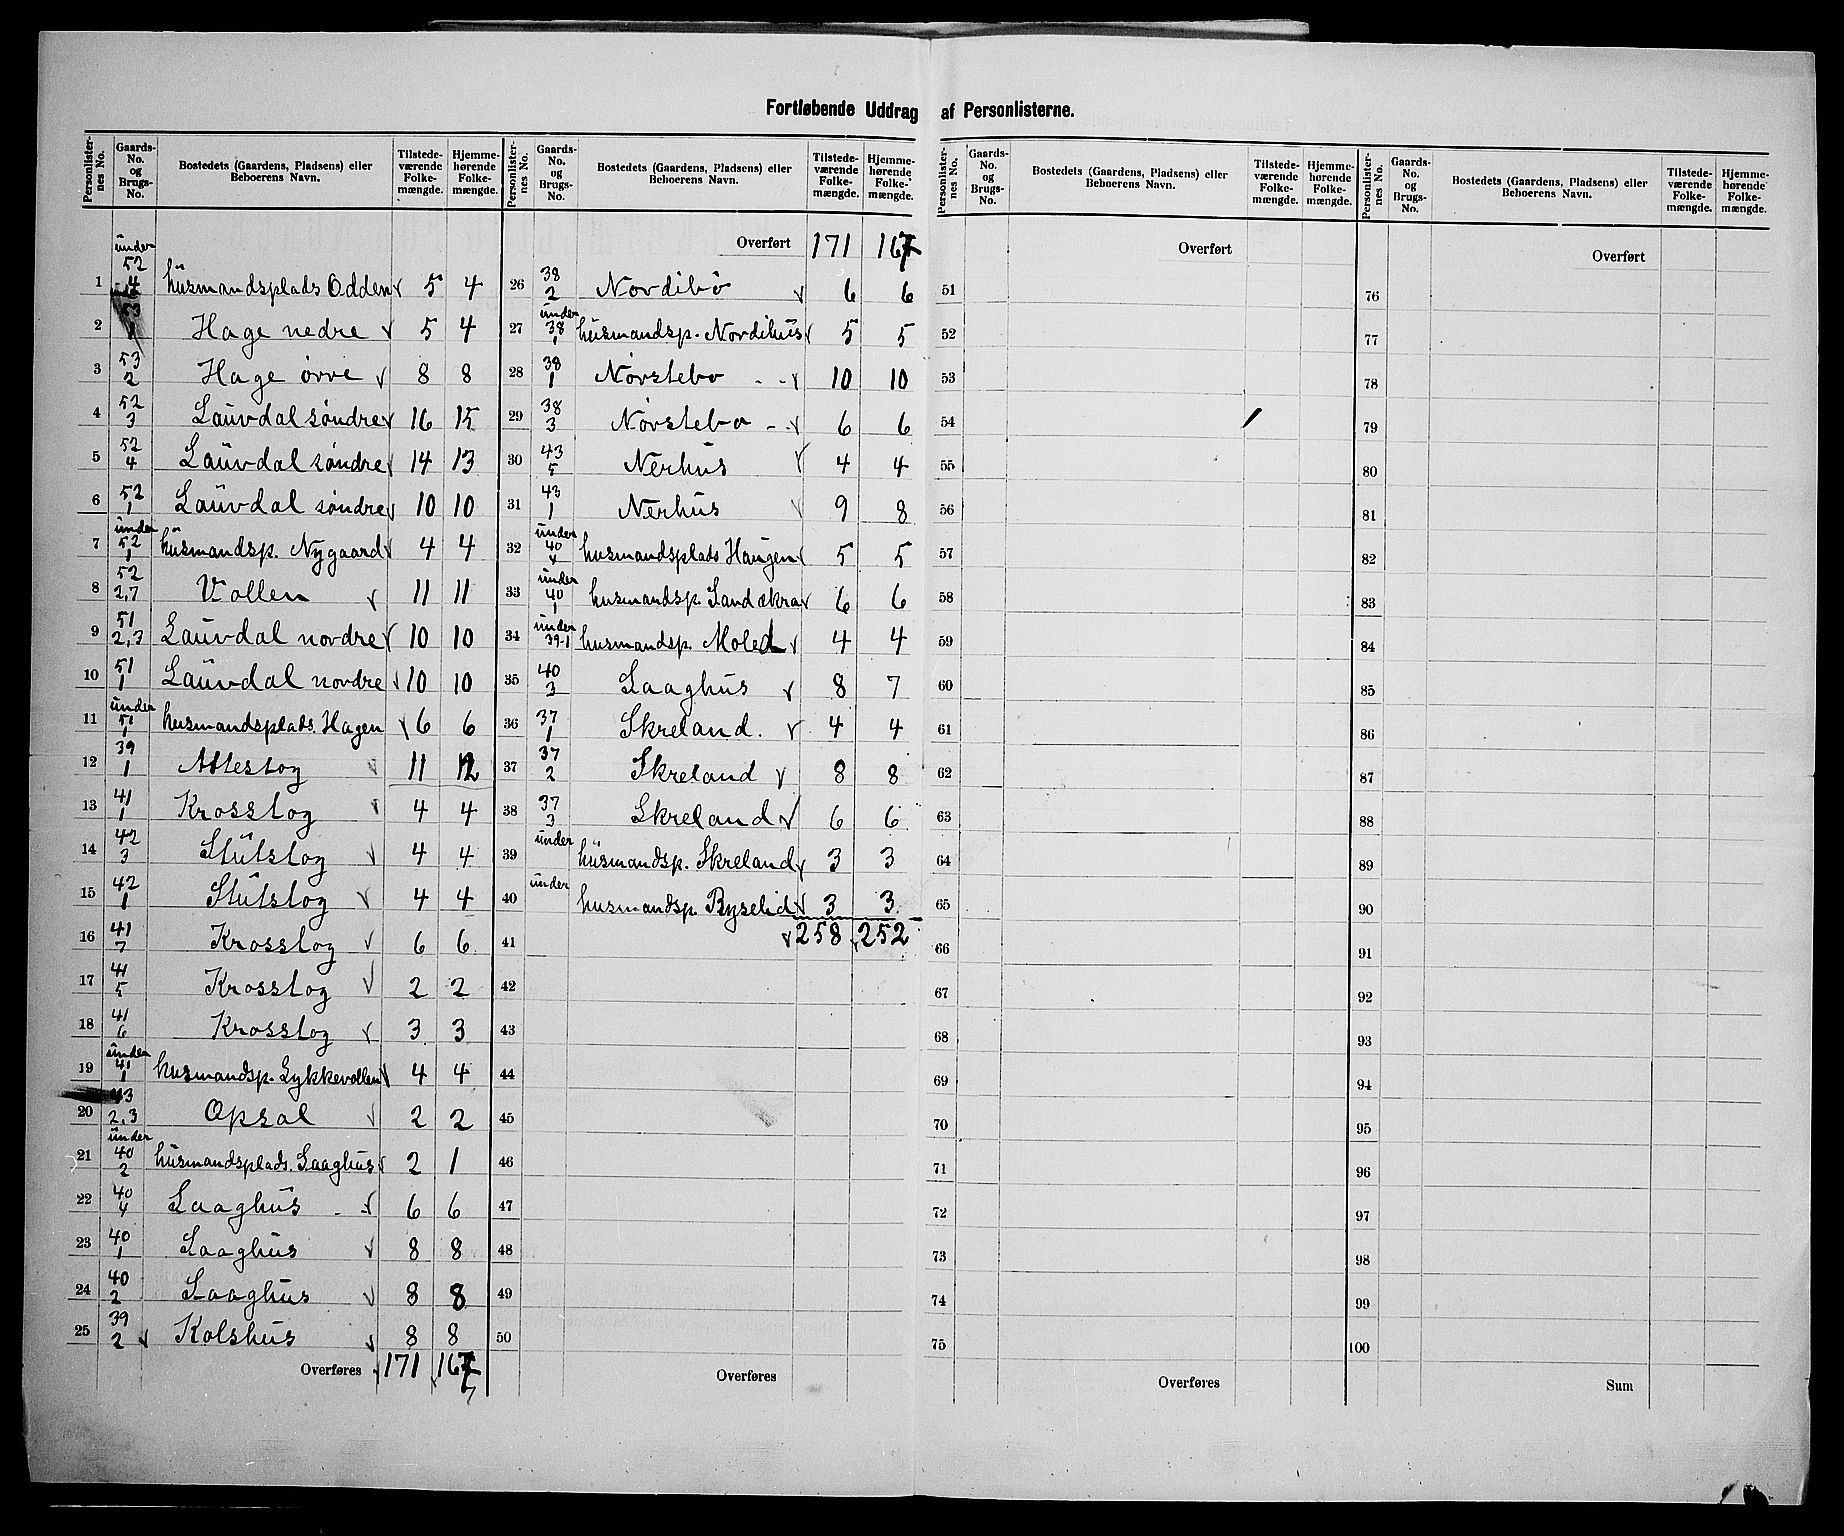 Fortløbende Uddrag af Personlisterne.
Personlister-nes No. | Gaards-No. og Brugs-No. | Bostedets (Gaardens, Pladsens) eller Beboerens Navn. | Tilstede-værende Folke-mængde. | Hjemme-hørende Folke-mængde.
1 | under 52 4 | husmandsplads Odden | 5 | 4
2 | 53 1 | Hage nedre | 5 | 4
3 | 53 2 | Hage øvre | 8 | 8
4 | 52 3 | Lauvdal søndre | 16 | 15
5 | 52 4 | Lauvdal søndre | 14 | 13
6 | 52 1 | Lauvdal søndre | 10 | 10
7 | under 52 1 | husmandsp. Nygaard | 4 | 4
8 | 52 2,7 | Vollen | 11 | 11
9 | 51 2,3 | Lauvdal nordre | 10 | 10
10 | 51 1 | Lauvdal nordre | 10 | 10
11 | under 51 1 | husmandsplads. Hagen | 6 | 6
12 | 39 1 | Attestog | 11 | 12
13 | 41 1 | Krosstog | 4 | 4
14 | 42 3 | Stutstog | 4 | 4
15 | 42 1 | Stutstog | 4 | 4
16 | 41 7 | Krosstog | 6 | 6
17 | 41 5 | Krosstog | 2 | 2
18 | 41 6 | Krosstog | 3 | 3
19 | under 41 1 | husmandsp. Lykkevollen | 4 | 4
20 | 43 2,3 | Opsal | 2 | 2
21 | under 40 2 | husmandsplads. Laaghus | 2 | 1
22 | 40 4 | Laaghus | 6 | 6
23 | 40 1 | Laaghus | 8 | 8
24 | 40 2 | Laaghus | 8 | 8
25 | 39 2 | Kolshus | 8 | 8
Overføres | 171 | 167
7
Personlister-nes No. | Gaards-No. og Brugs-No. | Bostedets (Gaardens, Pladsens) eller Beboerens Navn. | Tilstede-værende Folke-mængde. | Hjemme-hørende Folke-mængde.
Overført | 171 | 167
26 | 38 2 | Nordibø | 6 | 6
27 | under 38 1 | husmandsp. Nordihus | 5 | 5
28 | 38 1 | Nørstebø | 10 | 10
29 | 38 3 | Nørstebø | 6 | 6
30 | 43 5 | Nerhus | 4 | 4
31 | 43 1 | Nerhus | 9 | 8
32 | under 40 4 | husmandsplads Haugen | 5 | 5
33 | under 40 1 | husmandsp. Sandækra | 6 | 6
34 | under 39-1 | husmandsp. Moled | 4 | 4
35 | 40 3 | Laaghus | 8 | 7
36 | 37 1 | Skreland. | 4 | 4
37 | 37 2 | Skreland | 8 | 8
38 | 37 3 | Skreland | 6 | 6
39 | under | husmandsp. Skreland | 3 | 3
40 | under | husmandsp. Ryselid | 3 | 3
41 | 258 | 252
42
43
44
45
46
47
48
49
50
Overføres
Personlister-nes No. | Gaards-No. og Brugs-No. | Bostedets (Gaardens, Pladsens) eller Beboerens Navn. | Tilstede-værende Folke-mængde. | Hjemme-hørende Folke-mængde.
Overført
51
52
53
54
55
56
57
58
59
60
61
62
63
64
65
66
67
68
69
70
71
72
73
74
75
Overføres
Personlister-nes No. | Gaards-No. og Brugs-No. | Bostedets (Gaardens, Pladsens) eller Beboerens Navn. | Tilstede-værende Folke-mængde. | Hjemme-hørende Folke-mængde.
Overført
76
77
78
79
80
81
82
83
84
85
86
87
88
89
90
91
92
93
94
95
96
97
98
99
100
Sum